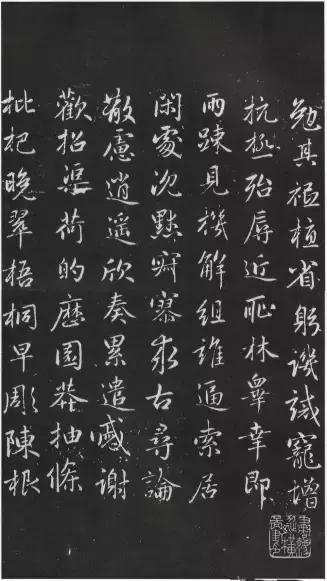 勉其祗植省躬譏誡寵增
抗極殆辱近耻林皋幸即
兩踈見機解組誰逼索居
閑處沈默寂寥求古尋論
散慮逍遥欣奏累遣慼謝
歡招渠荷的歷園莽抽條
枇杷晚翠梧桐早彫陳根